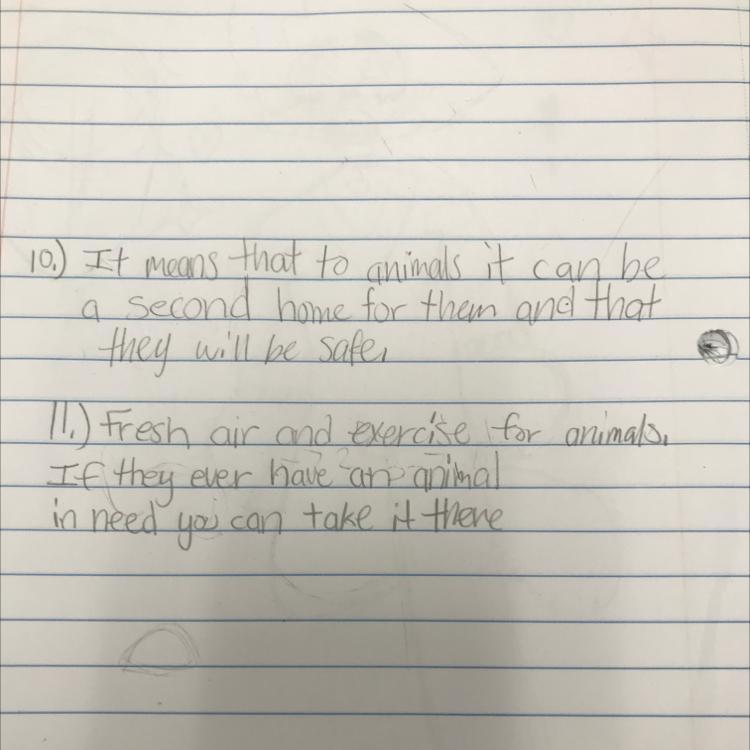 10.) It means that to animals it can be
a second home for them and that
they will be safe.
11.) Fresh air and exercise for animals.
If they ever have an animal
in need you can take it there